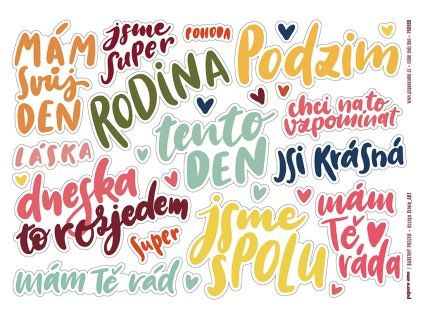 MÁM
Svůj
DEN
jsme
super
POHODA
Podzim
RODINA
tento
DEN
chci na to
vzpomínat
LÁSKA
jsi Krásná
dneska
to rozjedem
Super
jsme
SPOLU
mám
Tě
ráda
mám Tě rád